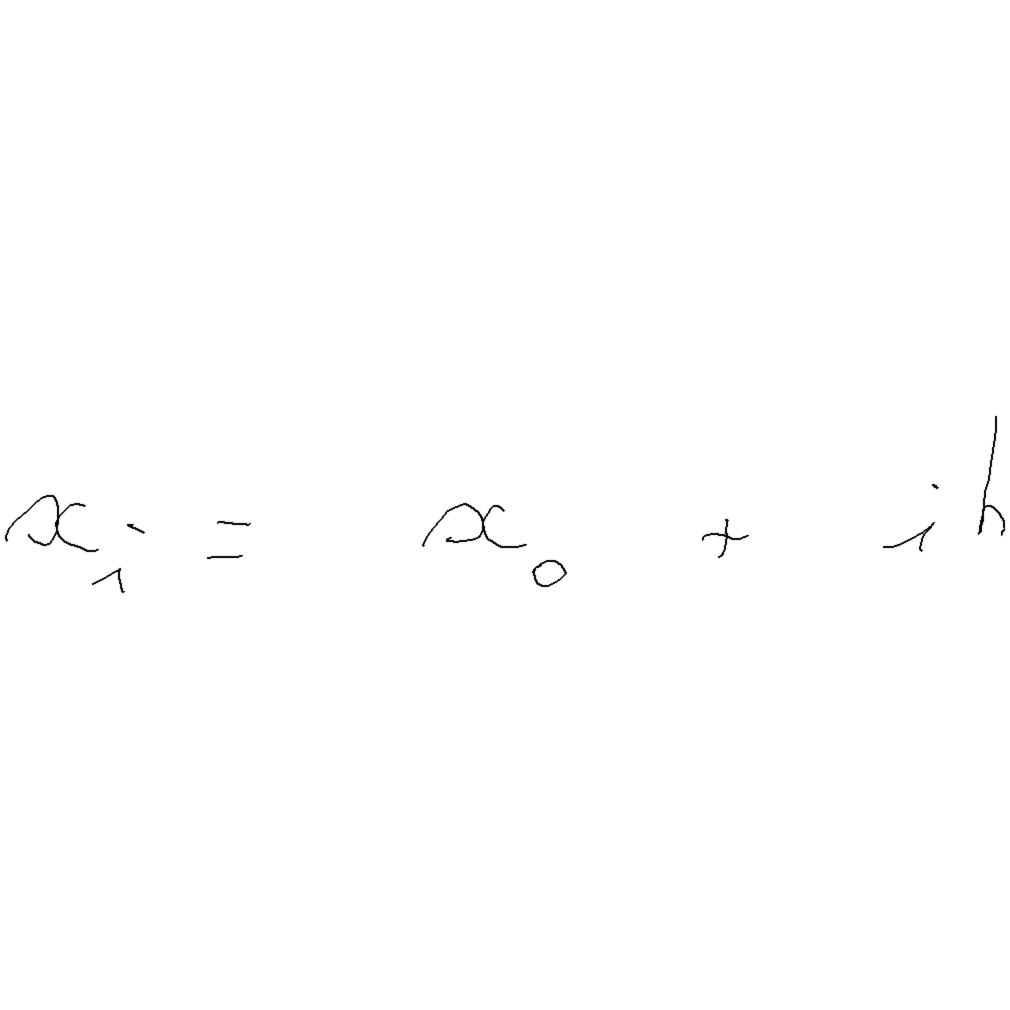 xᵢ = x₀ + ih